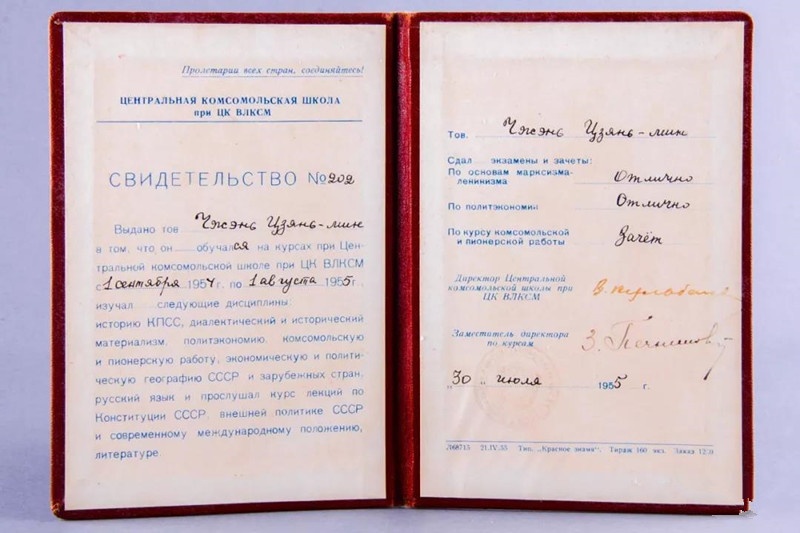 Пролетарии всех стран, соединяйтесь!
ЦЕНТРАЛЬНАЯ КОМСОМОЛЬСКАЯ ШКОЛА
при ЦК ВЛКСМ
СВИДЕТЕЛЬСТВО № 202
Выдано тов Чжэнь Цзянь-мин
в том, что он обучался на курсах при Цен-
тральной комсомольской школе при ЦК ВЛКСМ
с 1 сентября 1954 г. по 1 августа 1955 г.
изучал следующие дисциплины:
историю КПСС, диалектический и исторический
материализм, политэкономию, комсомольскую
и пионерскую работу, экономическую и полити-
ческую географию СССР и зарубежных стран,
русский язык и прослушал курс лекций по
Конституции СССР, внешней политике СССР
и современному международному положению,
литературе.
Тов. Чжэнь Цзянь-мин
Сдал экзамены и зачеты:
По основам марксизма-
ленинизма Отлично
По политэкономии Отлично
По курсу комсомольской
и пионерской работы Зачёт
Директор Центральной
комсомольской школы при
ЦК ВЛКСМ
Заместитель директора
по курсам З.
„30„ июля 1955 г.
Л68715 21.IV.55 Тип. „Красное знамя“. Тираж 160 экз. Заказ